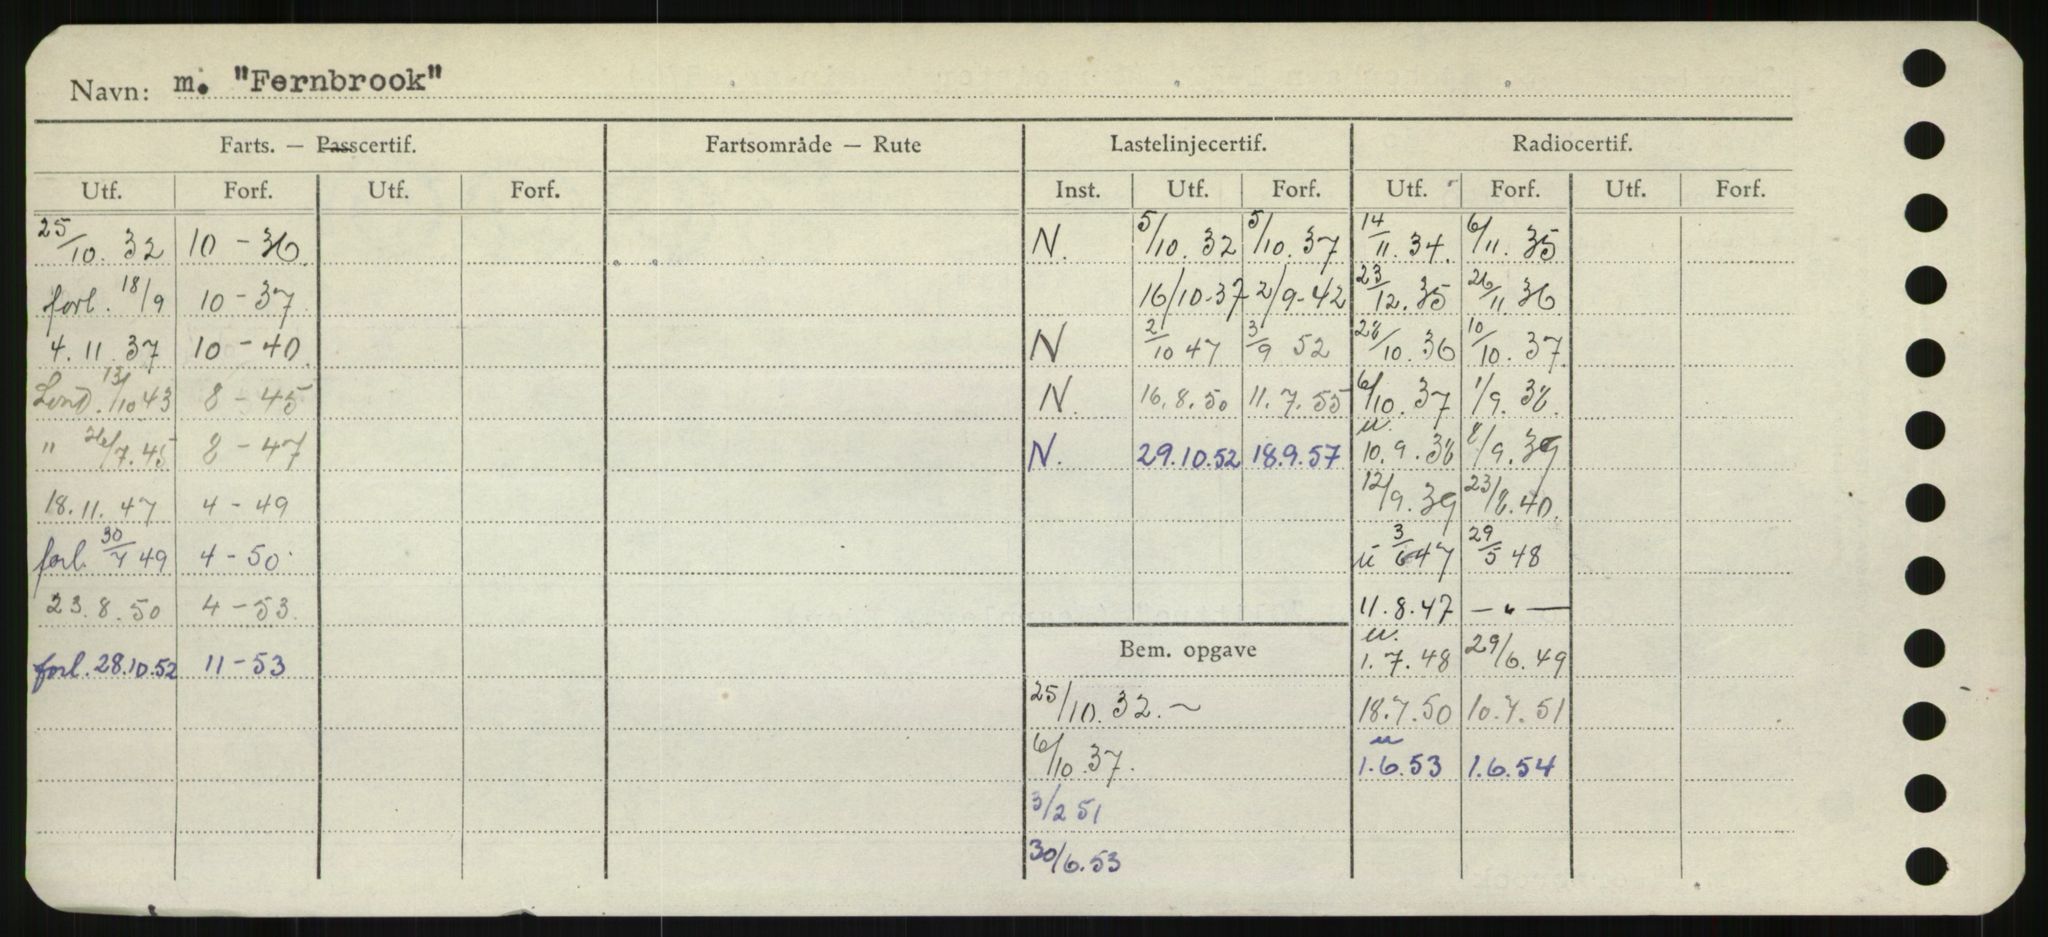 Navn: m. "Fernbrook"
Farts. — Passcertif. Fartsområde — Rute Lastelinjecertif. Radiocertif.
Utf. Forf. Utf. Forf. Inst. Utf. Forf. Utf. Forf. Utf. Forf.
25/10. 32 10 - 36 N. 5/10. 32 5/10. 37 14/11. 34. 6/11. 35
forl. 18/9 10 - 37 16/10-37 2/9-42 23/12. 35 26/11 36
4. 11 37 10 - 40 N 2/10 47 3/9 52 28/10. 36 10/10. 37
Lond. 13/10 43 8 - 45 N. 16. 8. 50 11. 7. 55 6/10. 37 1/9. 38.
" 26/7. 45 8 - 47 N. 29.10.52 18.9.57 u. 10. 9. 38 8/9. 39
18. 11. 47 4 - 49 12/9. 39 23/8. 40.
forl. 30/4 49 4 - 50 u 3/6 47 29/5 48
23. 8. 50 4 - 53. 11. 8. 47 — " —
forl. 28.10.52 11 - 53 Bem. opgave u. 1. 7. 48 29/6. 49
25/10. 32. ~ 18.7.50 10.7.51
6/10. 37. u 1.6.53 1.6.54
3/2 51
30/6.53